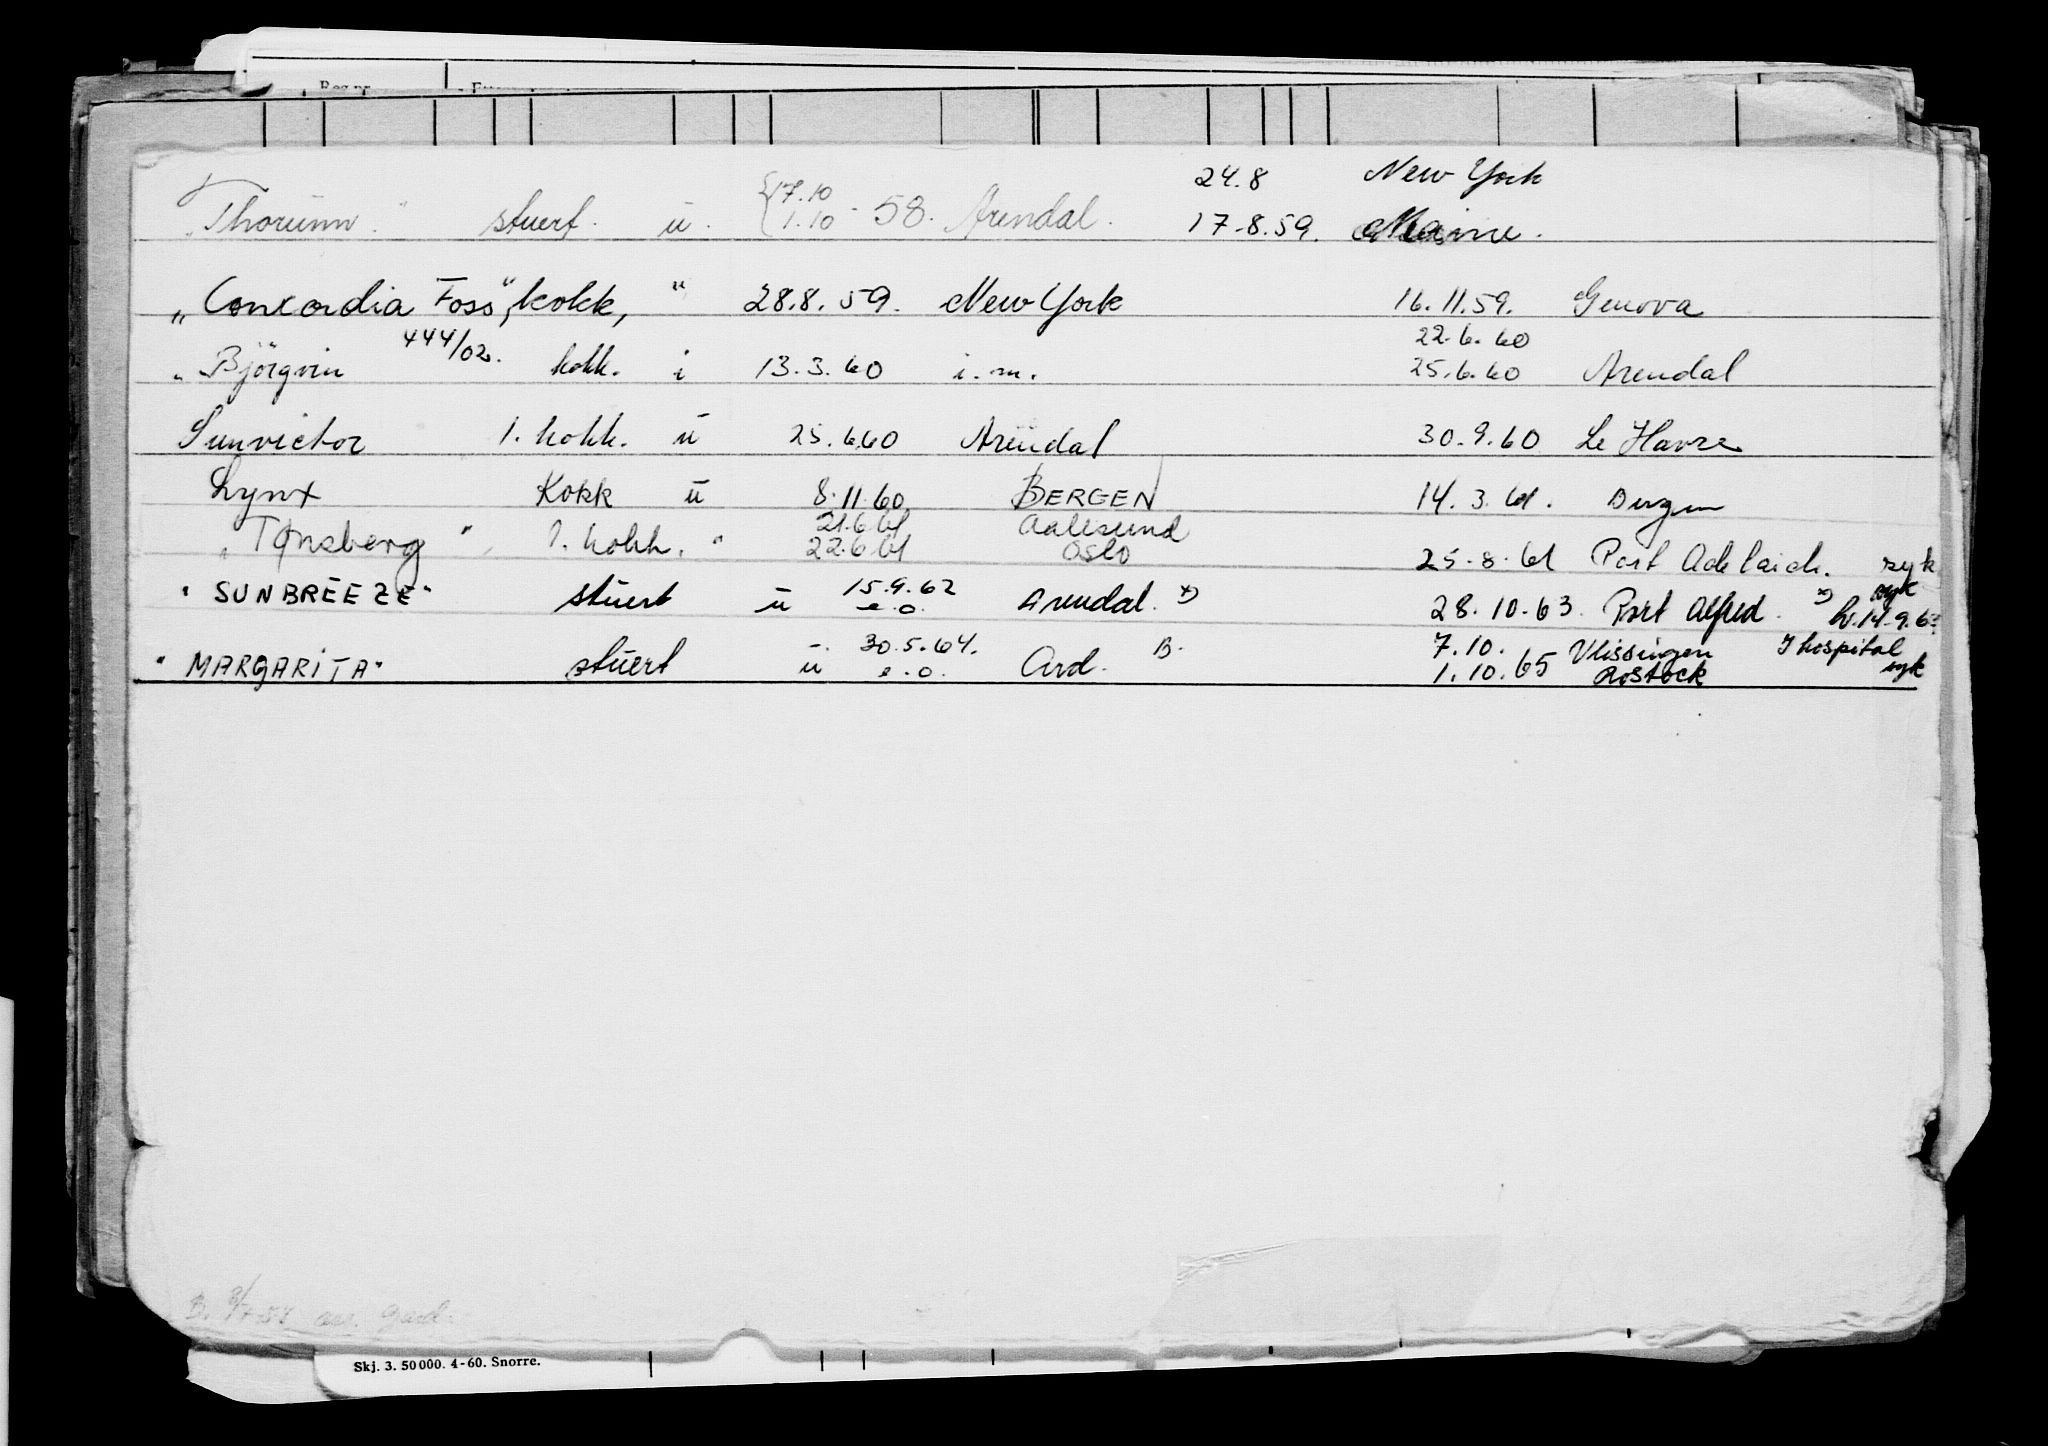 24.8 New York
"Thorunn." stuert. u. {17.10 1.10 - 58. Arendal. 17-8.59. Maine.
"Concordia Foss", kokk, " 28.8.59. New York 16.11.59. Genova
444/02. 22.6.60
"Björgvin kokk. i 13.3.60 i.m. 25.6.60 Arendal
Sunvictor 1. kokk. u 25.6.60 Arendal 30.9.60 Le Havre
Lynx Kokk u 8.11.60 BERGEN 14.3.61. Bergen
21.6.61 Aalesund
"Tønsberg", 1. kokk. " 22.6.61 Oslo 25.8.61 Port Adelaide. syk
"SUNBREEZE" stuert u 15.9.62 e.o. Arendal. *) 28.10.63. Port Alfred. *) syk h.14.9.63
30.5.64. B. 7.10. Vlissingen I hospital
"MARGARITA" stuert u e.o. Ard. 1.10.65 Rostock syk
B. gard.
Skj. 3. 50 000. 4-60. Snorre.